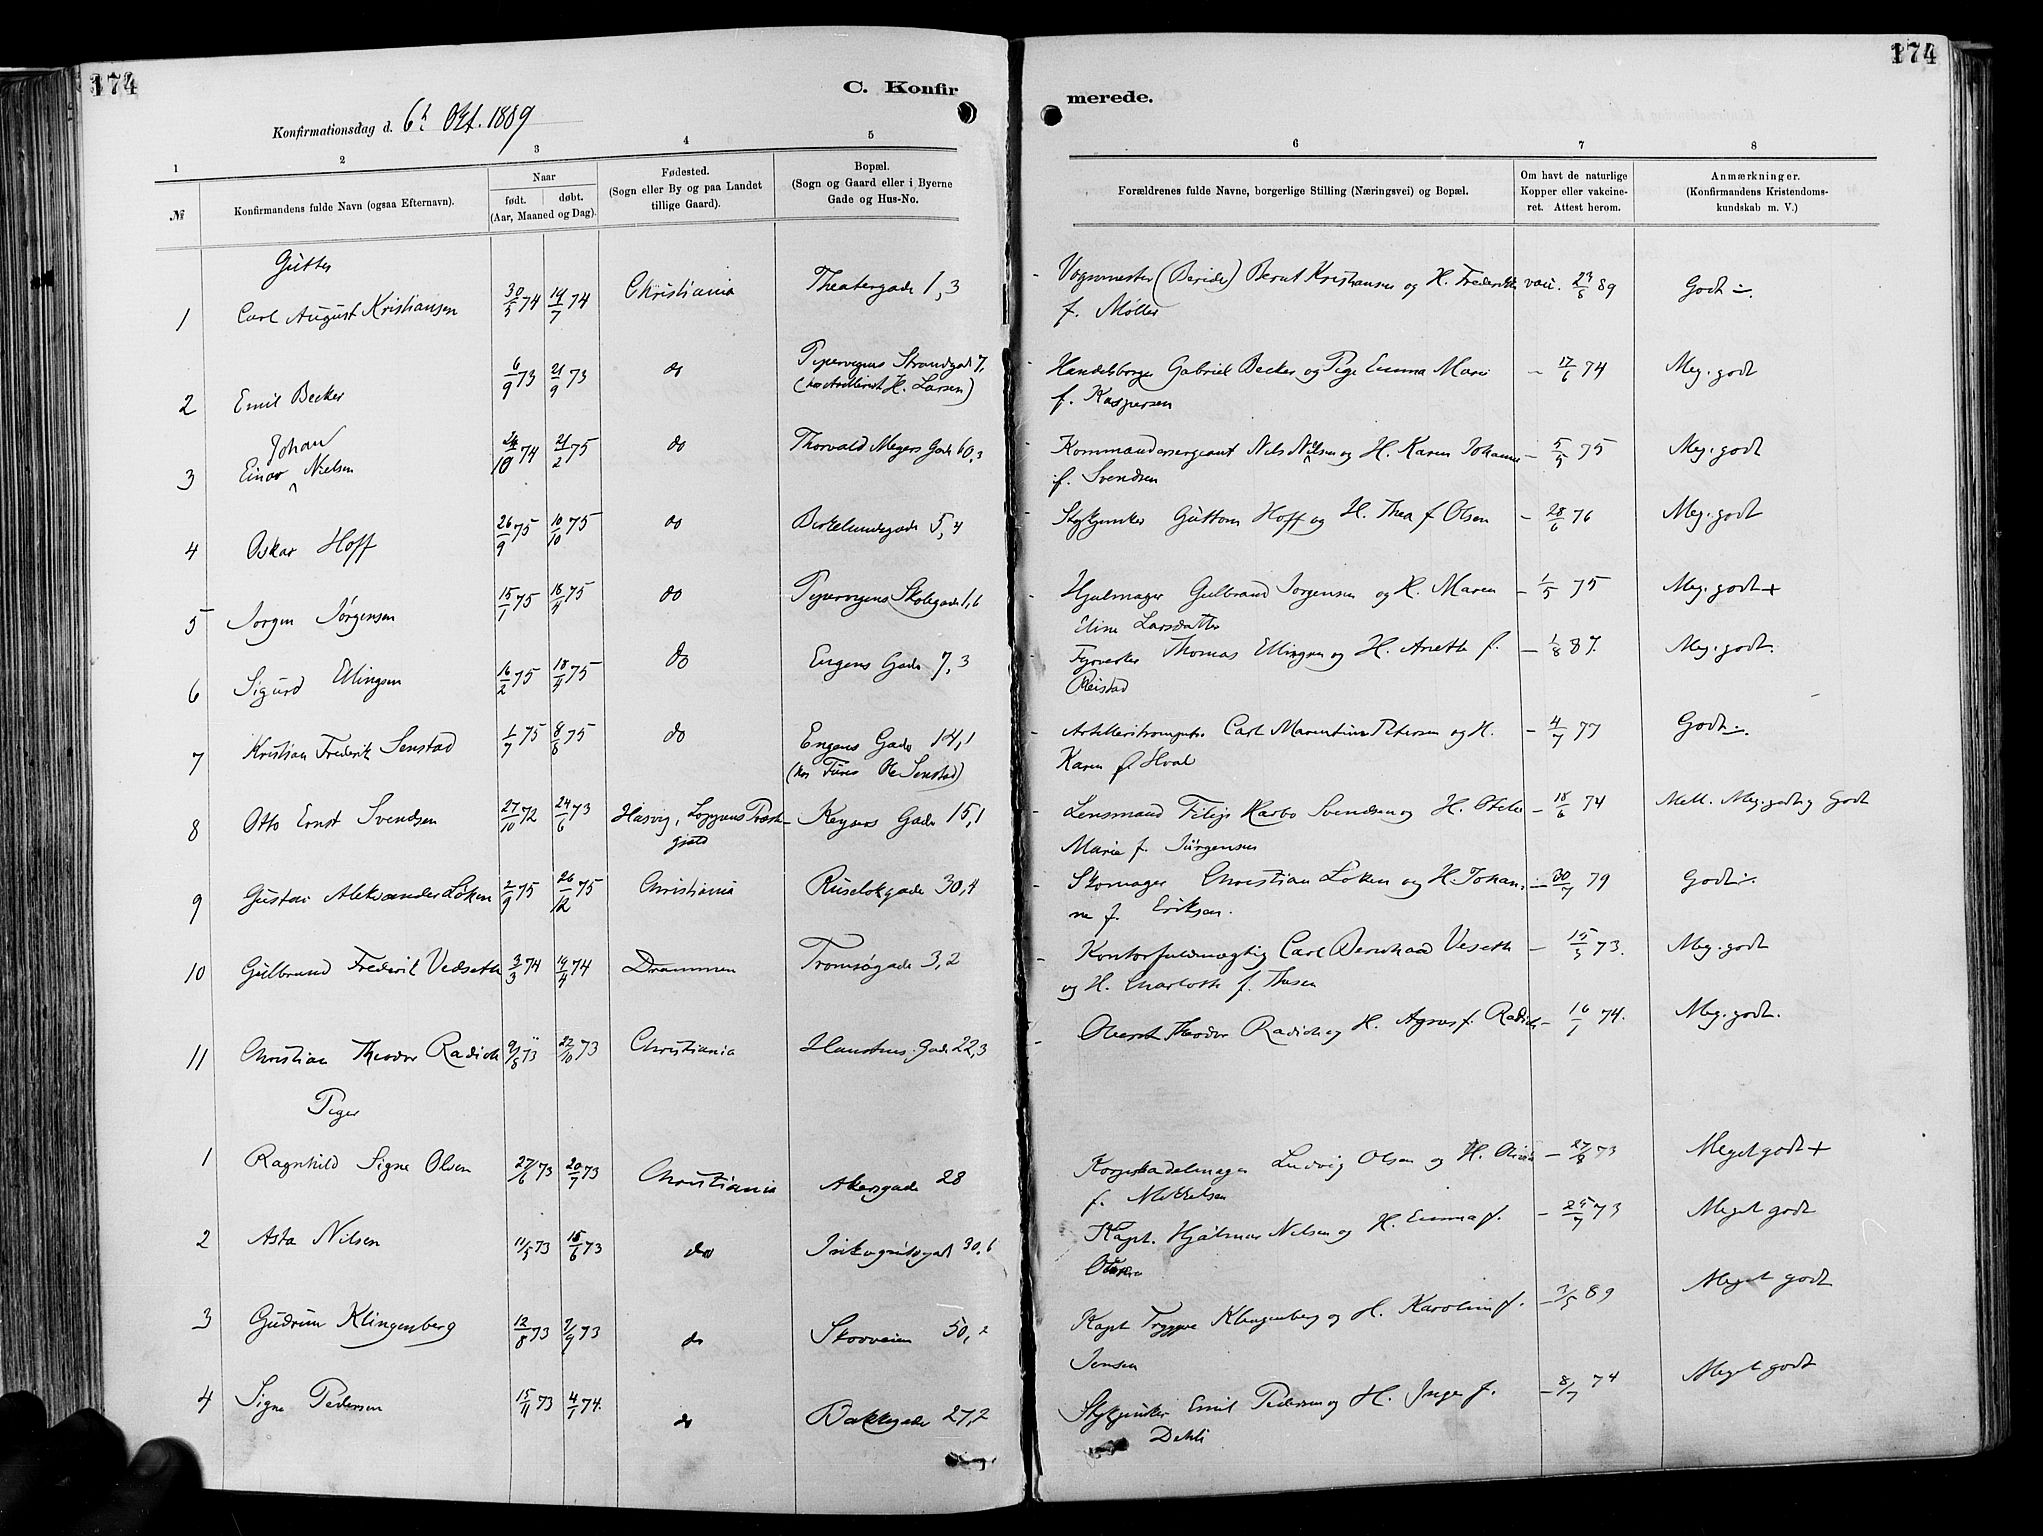 174
174
C. Konfir
merede.
Konfirmationsdag d. 6te Okt. 1889
1 2 3 4 5
6 7 8
№
Konfirmandens fulde Navn (ogsaa Efternavn).
Naar
født. døbt.
(Aar, Maaned og Dag).
Fødested.
(Sogn eller By og paa Landet
tillige Gaard).
Bopæl.
(Sogn og Gaard eller i Byerne
Gade og Hus-No.
Forældrenes fulde Navne, borgerlige Stilling (Næringsvei) og Bopæl.
Om havt de naturlige
Kopper eller vakcine-
ret. Attest herom.
Anmærkninger.
(Konfirmandens Kristendoms-
kundskab m. V.)
Gutter
1 Carl August Kristiansen 30/5 74 14/7 74 Christiania Theatergade 1, 3
Vognmester (Berider) Bernt Kristiansen og H. Frederikke vacc. 23/5 89 Godt
f. Møller
2 Emil Becker 6/9 73 21/9 73 do Pipervigens Strandgade 7,
(hos Artillerist H. Larsen)
Handelsborger Gabriel Becker og Pige Emma Marie - 17/6 74 Meg. godt
f. Kaspersen
Johan
3 Einar Nielsen 24/10 74 21/2 75 do Thorvald Meyers Gade 60, 3
Kommandersergeant Nils Nilsen og H. Karen Johanne - 5/5 75 Meg. godt
f. Svendsen
4 Oskar Hoff 26/9 75 10/10 75 do Birkelundegade 5, 4
Stykjunker Guttorm Hoff og H. Thea f. Olsen - 28/6 76 Meg. godt
5 Jørgen Jørgensen 15/1 75 18/4 75 do Pipervigens Skolegade 1, 6
Hjulmager Gulbrand Jørgensen og H. Maren - 1/5 75 Meg. godt +
Eline Larsdatter
6 Sigurd Ellingsen 16/2 75 18/4 75 do Engens Gade 7, 3
Fyrverker Thomas Ellingsen og H. Anette f. - 1/8 87. Meg. godt.
Reistad
7 Kristian Frederik Senstad 1/7 75 8/6 75 do Engens Gade 14, 1
(hos Furer Ole Senstad)
Artilleritrompeter Carl Marentius Petersen og H. - 4/7 77 Godt
Karen f. Hval
8 Otto Ernst Svendsen 27/10 72 24/6 73 Hasvig, Loppens Præste- Keysers Gade 15, 1
gjeld
Lensmand Filip Harbo Svendsen og H. Otelie - 18/6 74 Mell. Meg. godt og Godt
Marie f. Jürgensen
9 Gustav Aleksander Løken 2/9 75 26/12 75 Christiania Ruseløkgade 30, 4
Skomager Christian Løken og H. Johan- - 30/7 79 Godt
ne f. Eriksen.
10 Gulbrand Frederik Vedseth 3/3 74 14/4 74 Drammen Tromsøgade 3, 2
Kontorfuldmægtig Carl Bernhard Veseth - 15/5 73. Meg. godt
og H. Charlotte f. Thesen
11 Christian Theodor Radich 9/8 73 22/10 73 Christiania Haustens Gade 22, 3
Oberst Theodor Radich og H. Agnes f. Radich - 16/1 74. Meg. godt.
Piger
1 Ragnhild Signe Olsen 27/6 73 20/7 73 Christiania Akersgade 28
Korpssadelmager Ludvig Olsen og H. Olivia - 27/8 73 Meget godt +
f. Mikkelsen
2 Asta Nilsen 11/5 73 15/6 73 do Inkognitogade 30, 6
Kapt. Hjalmar Nilsen og H. Emma f. - 25/7 73 Meget godt
3 Gudrun Klingenberg 12/8 73 7/9 73 do Skovveien 50, 2
Kapt Tryggve Klingenberg og H. Karoline f. - 3/5 89 Meget godt
Jensen
4 Signe Pedersen 15/11 73 4/1 74. do Bakkegade 27, 2
Stykjunker Emil Pedersen og H. Inger f. - 8/7 74 Meget godt
Dehli